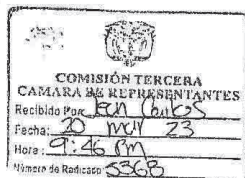 COMISIÓN TERCERA
CAMARA DE REPRESENTANTES
Recibido Por: Jean
Fecha: 20 mar 23
Hora: 9:46 Am
Número de Radicado 5368